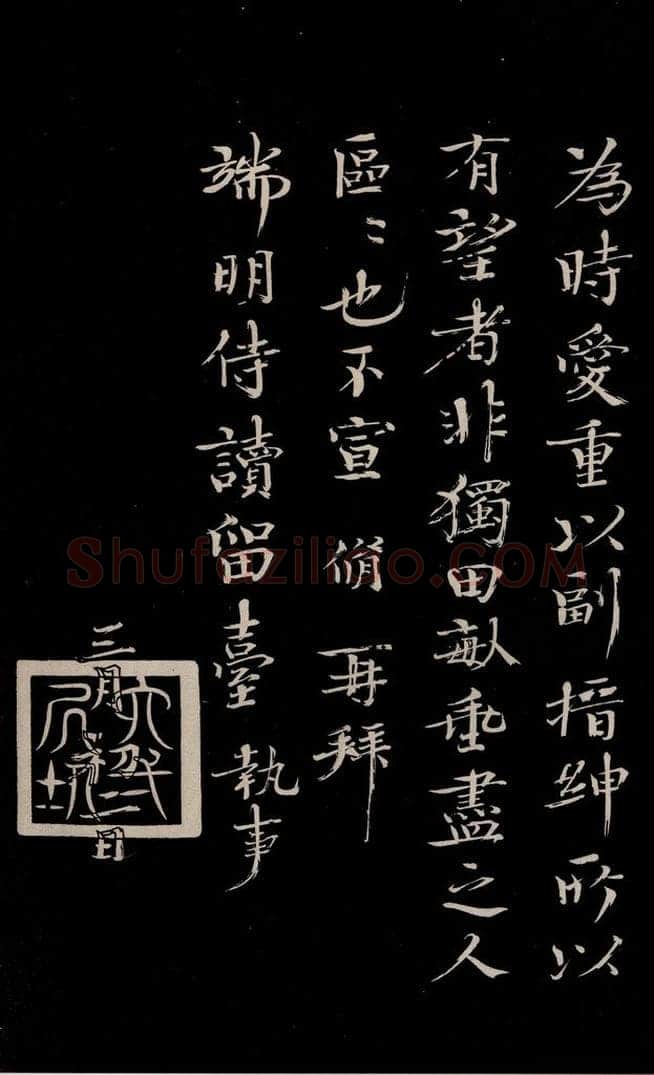 為時愛重以副搢紳所以
有望者非獨田畝垂盡之人
區〻也不宣 脩再拜
端明侍讀留臺執事
三月初二日
Shufaziliao.COM